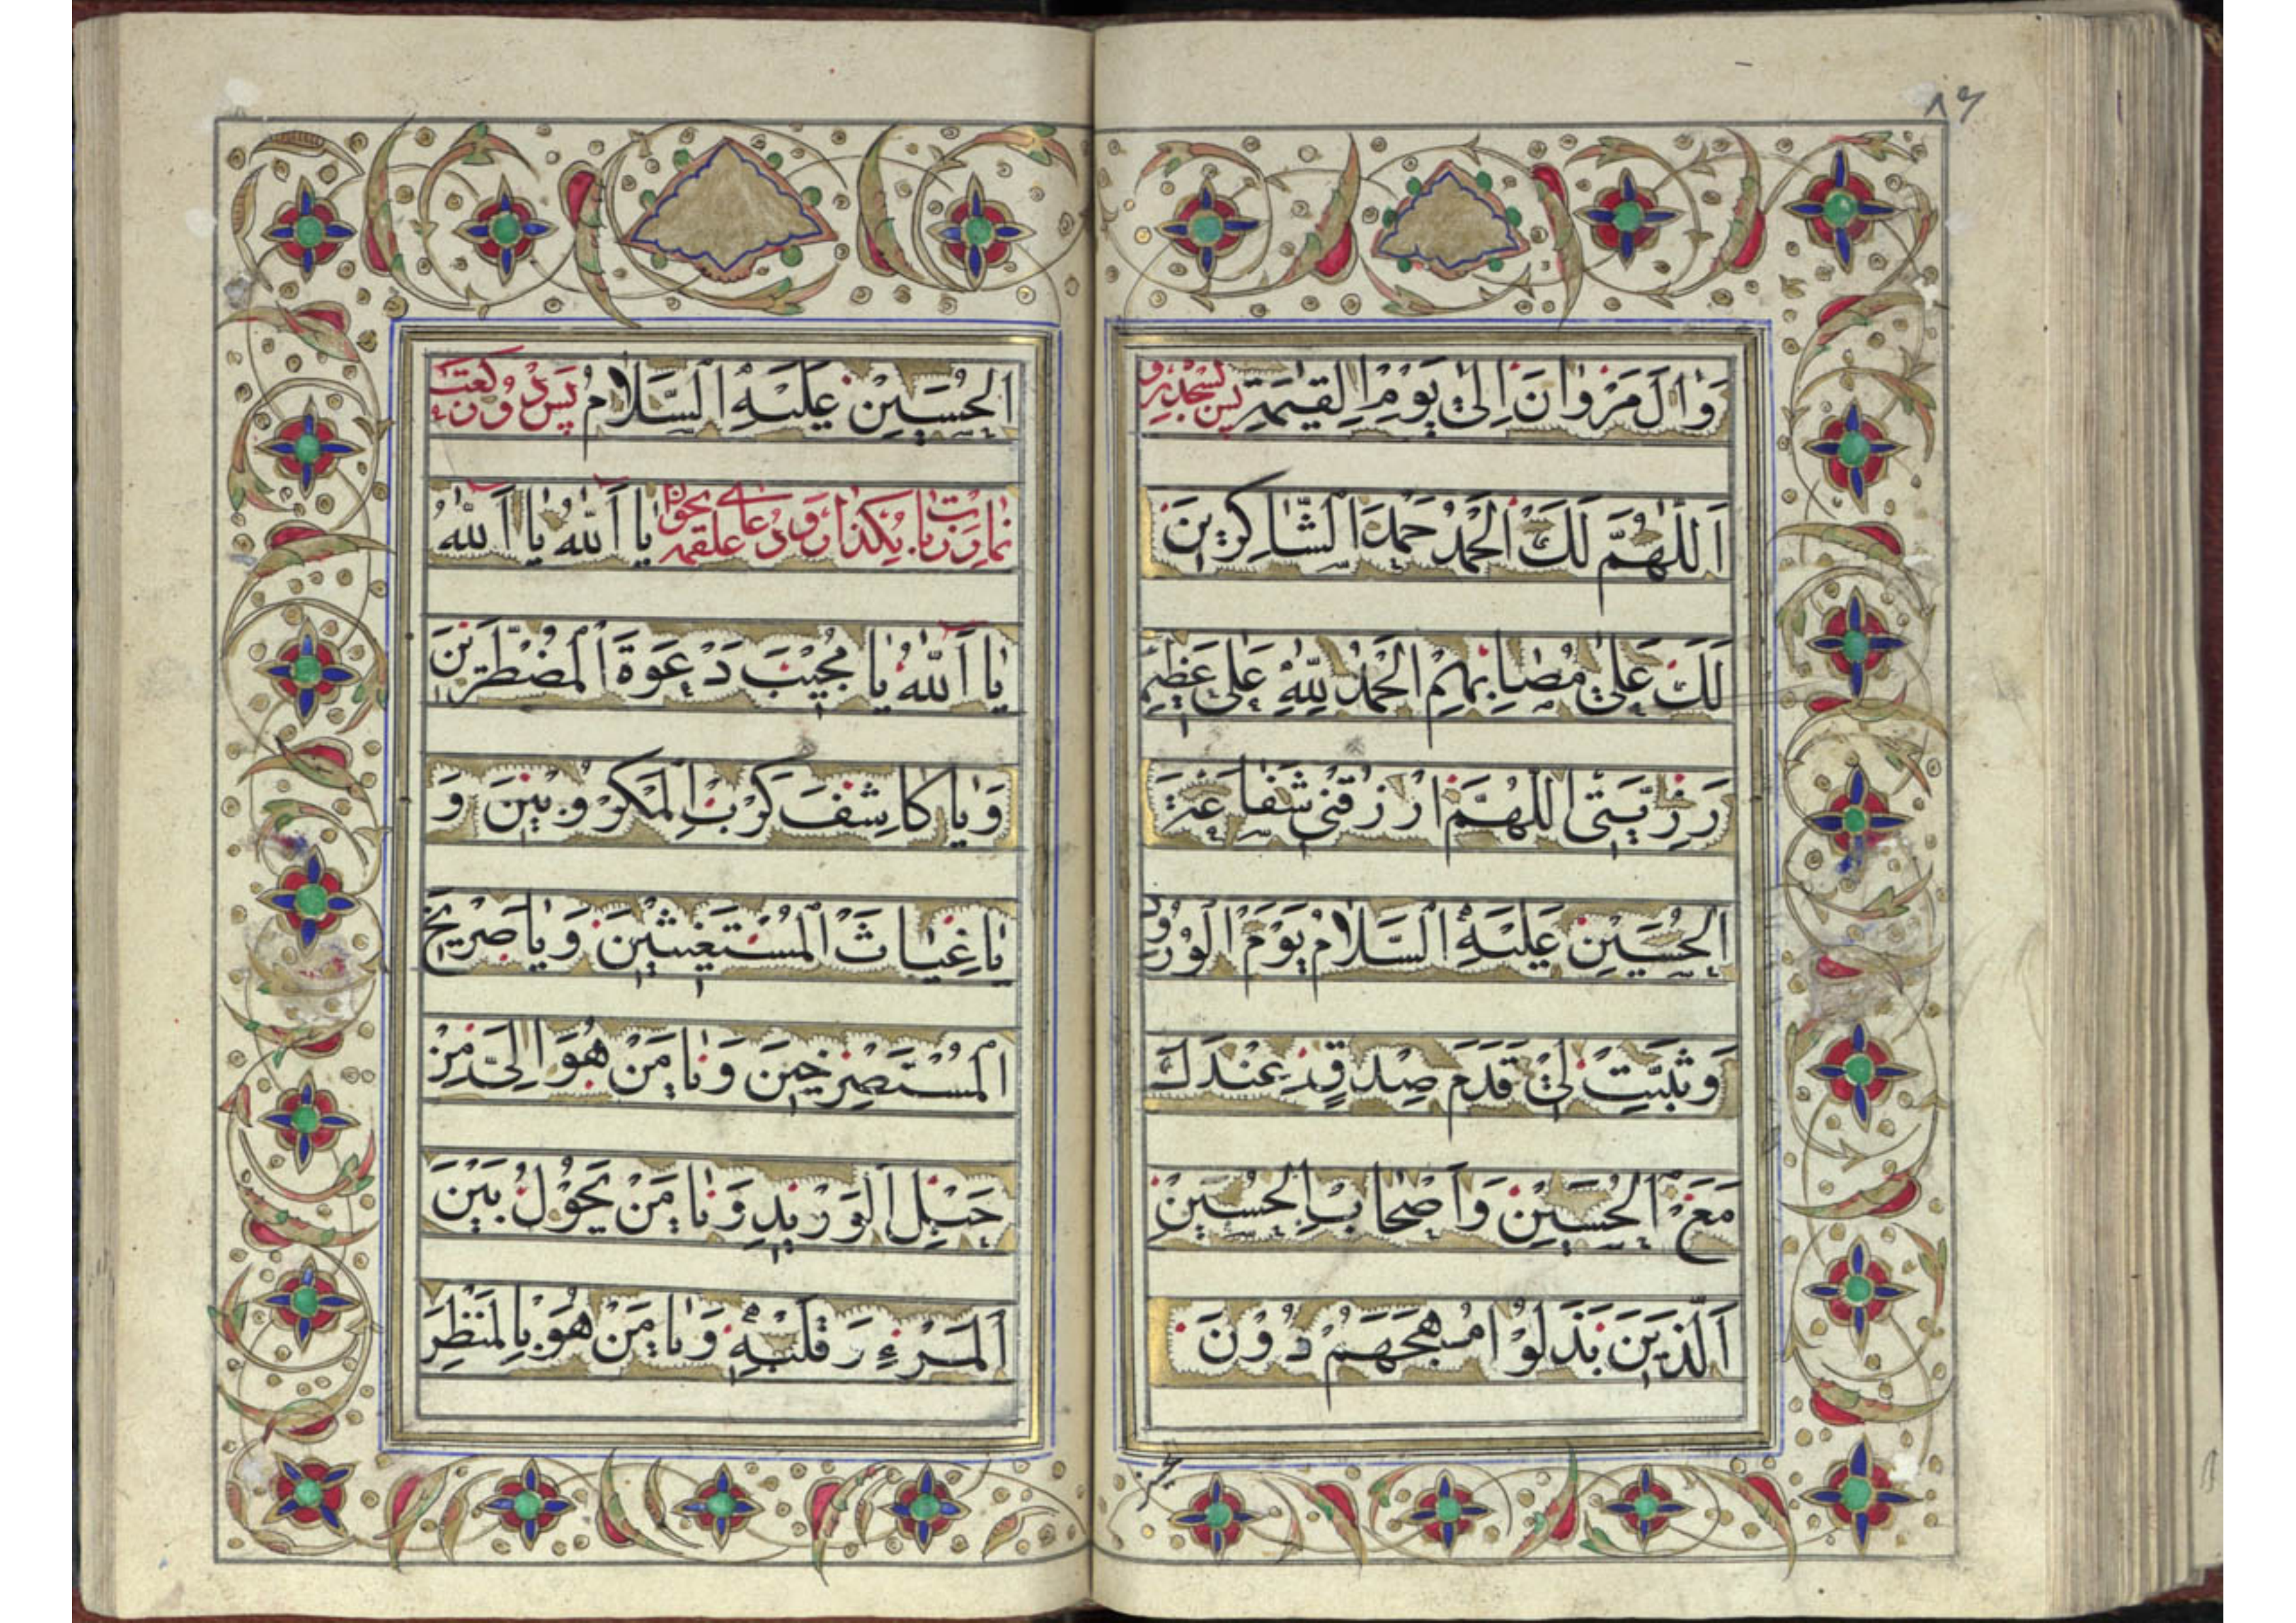 ۸۶
وَاٰلَ مَرْوٰانَ اِلىٰ يَوْمِ الْقِيٰمَةِ پس بسجده رو
اَللّٰهُمَّ لَكَ الْحَمْدُ حَمْدَ الشّٰاكِرينَ
لَكَ عَلىٰ مُصٰابِهِمْ اَلْحَمْدُ لِلّٰهِ عَلىٰ عَظيمِ
رَزِيَّتى اَللّٰهُمَّ ارْزُقْنى شَفٰاعَةَ
الْحُسَيْنِ عَلَيْهِ السَّلٰامُ يَوْمَ الْوُرُودِ
وَثَبِّتْ لى قَدَمَ صِدْقٍ عِنْدَكَ
مَعَ الْحُسَيْنِ وَاَصْحٰابِ الْحُسَيْنِ
اَلَّذينَ بَذَلَوُا مُهَجَهَمُ دُونَ
الْحُسَيْنِ عَلَيْهِ السَّلٰامُ پس دو ركعت
نماز زيارت بكذار و دعاى علقمه بخوان يٰا اَللّٰهُ يٰا اَللّٰهُ
يٰا اَللّٰهُ يٰا مُجيبَ دَعْوَةَ الْمُضْطَرّينَ
وَيٰا كٰاشِفَ كَرْبِ الْمَكْرُوبينَ وَ
يٰا غِيٰاثَ الْمُسْتَغيثينَ وَيٰا صَريخَ
الْمُسْتَصْرِخينَ وَيٰا مَنْ هُوَ اِلَىَّ مِنْ
حَبْلِ الْوَريدِ وَيٰا مَنْ يَحُولُ بَيْنَ
الْمَرْءِ وَ قَلْبِهِ وَيٰا مَنْ هُوَ بِالْمَنْظَرِ